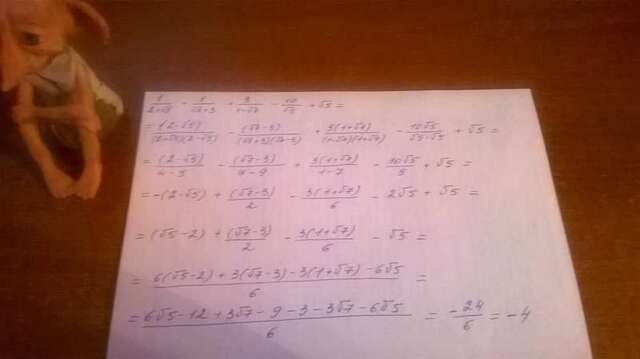 1/(2+√5) - 1/(√7+3) + 3/(1-√7) - 10/√5 + √5 =
= (2-√5)/((2+√5)(2-√5)) - (√7-3)/((√7+3)(√7-3)) + 3(1+√7)/((1-√7)(1+√7)) - 10√5/(√5·√5) + √5 =
= (2-√5)/(4-5) - (√7-3)/(7-9) + 3(1+√7)/(1-7) - 10√5/5 + √5 =
= -(2-√5) + (√7-3)/2 - 3(1+√7)/6 - 2√5 + √5 =
= (√5-2) + (√7-3)/2 - 3(1+√7)/6 - √5 =
= (6(√5-2) + 3(√7-3) - 3(1+√7) - 6√5)/6 =
= (6√5 - 12 + 3√7 - 9 - 3 - 3√7 - 6√5)/6 = -24/6 = -4